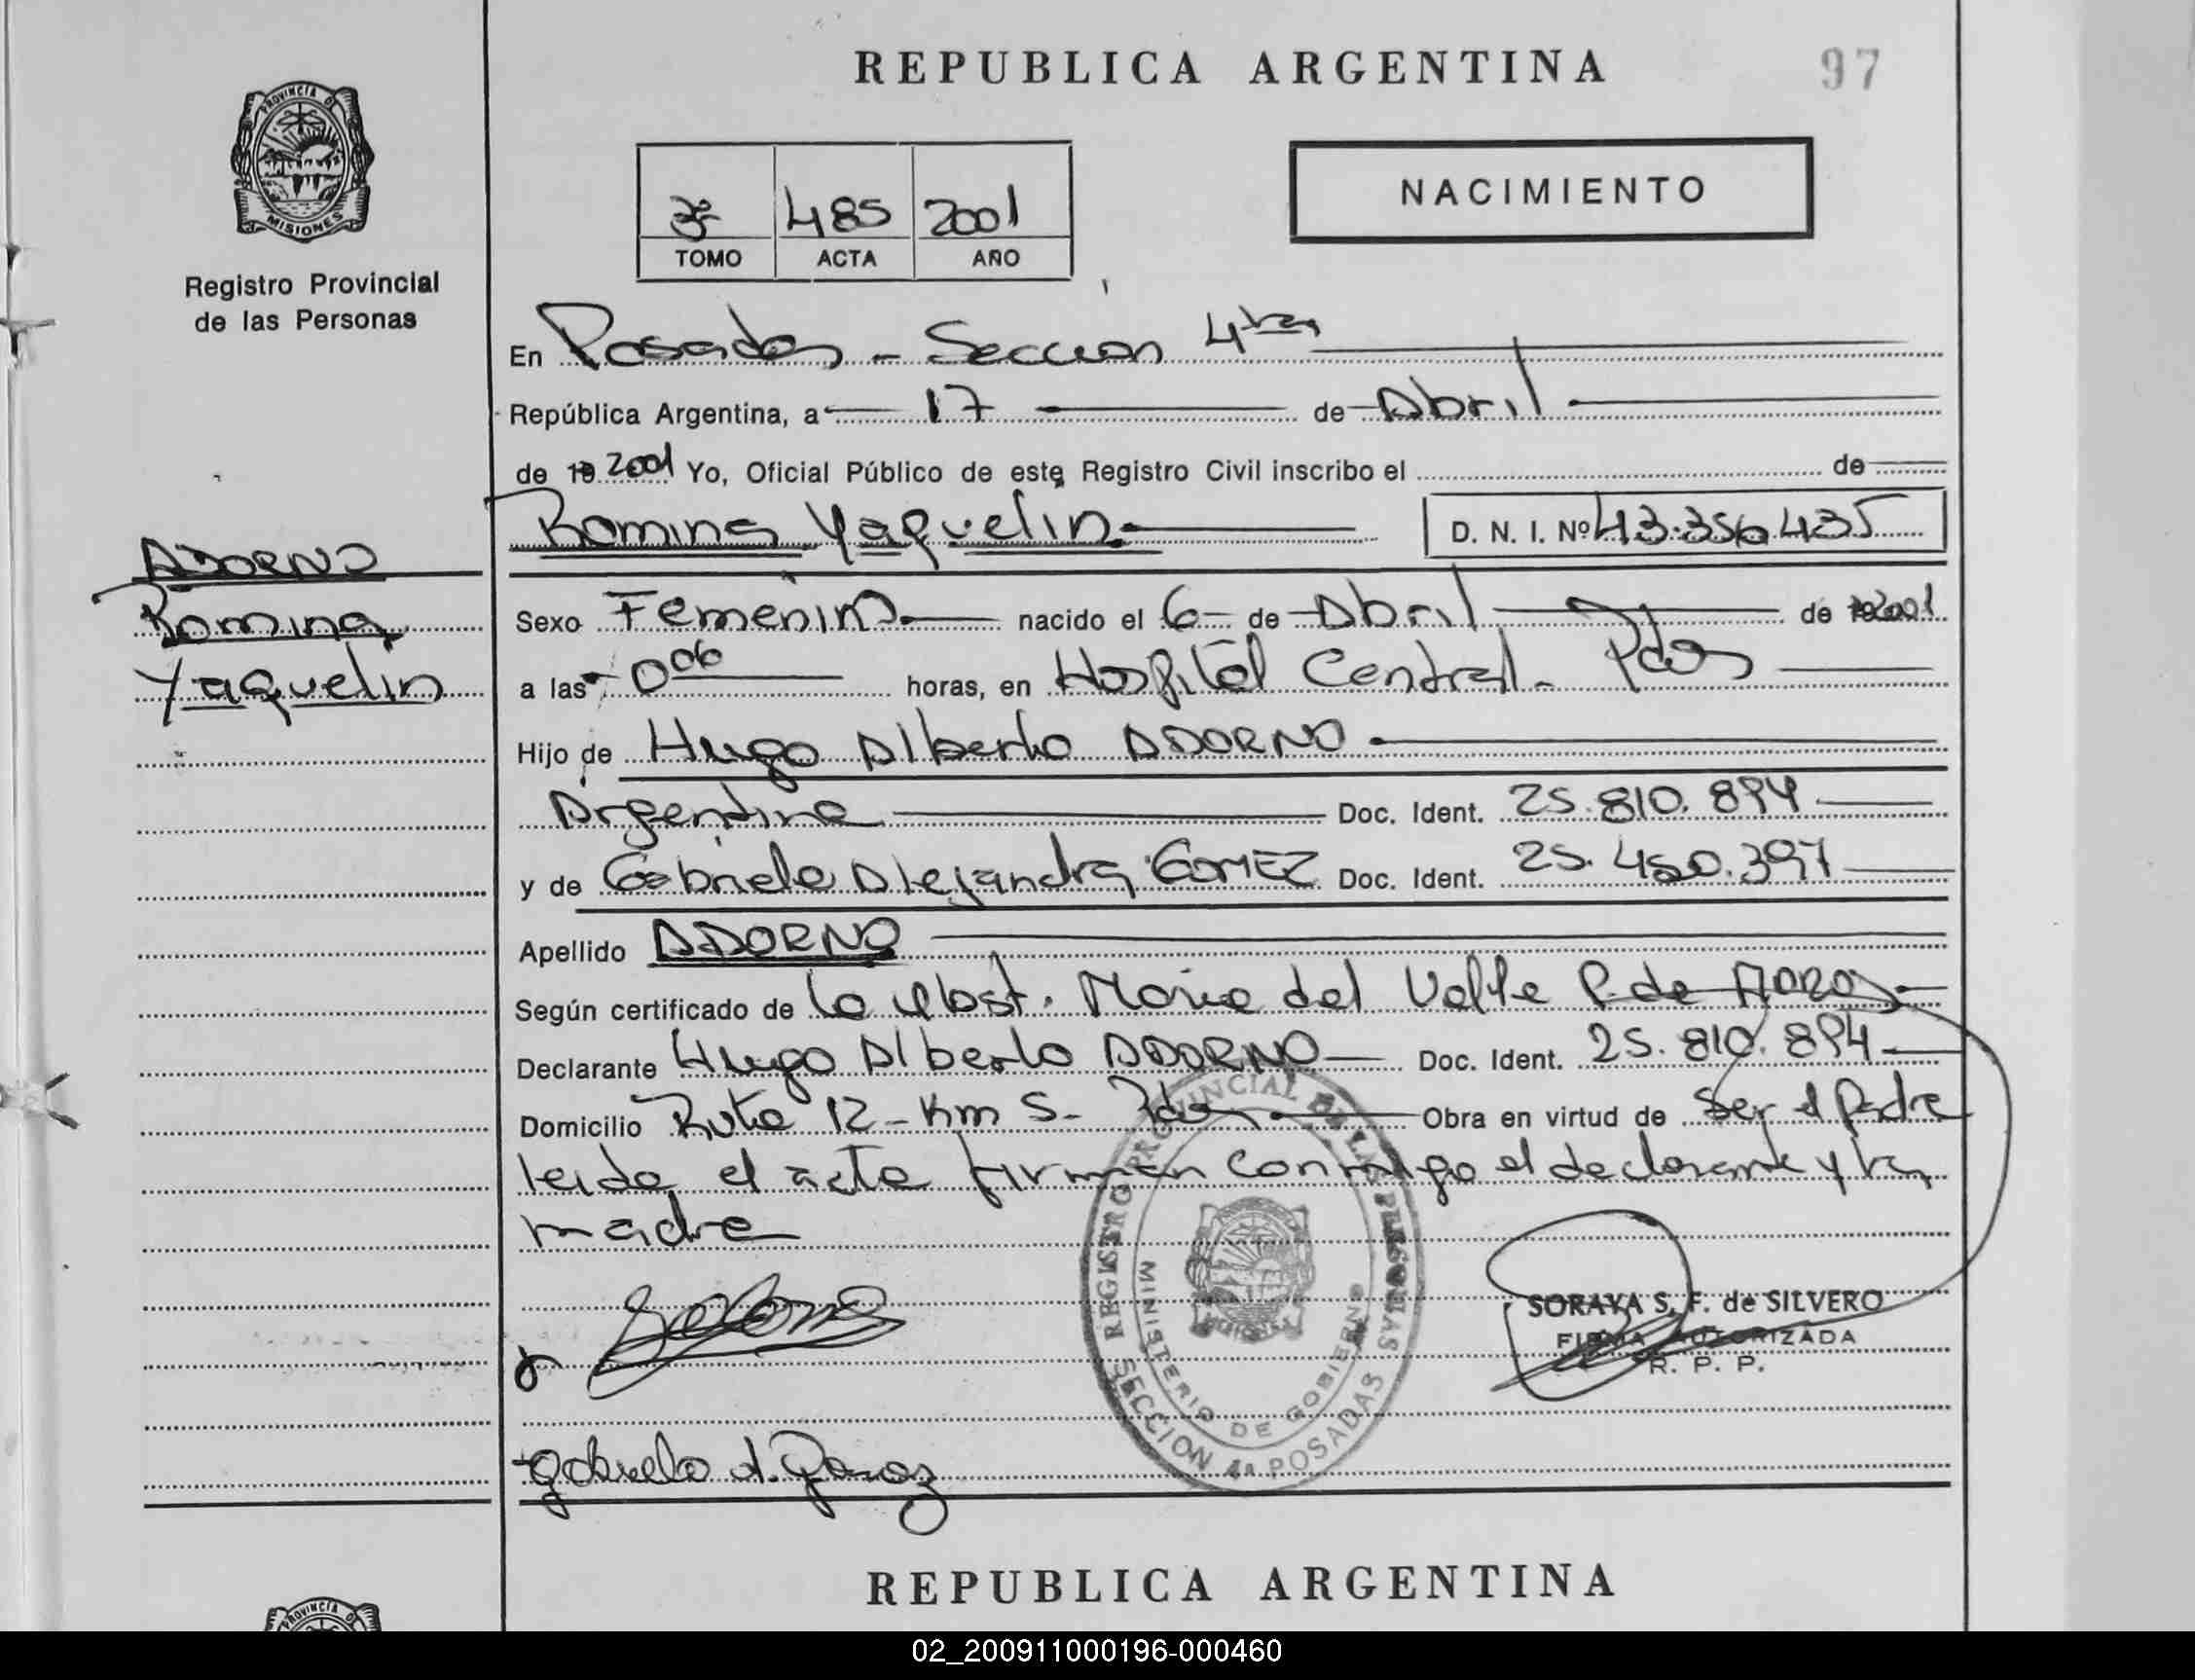 REPUBLICA ARGENTINA
97
PROVINCIA DE
MISIONES
Registro Provincial
de las Personas
3º 485 2001
TOMO ACTA AÑO
NACIMIENTO
En Posadas - Sección 4ta
República Argentina, a 17 de Abril
de 19 2001 Yo, Oficial Público de este Registro Civil inscribo el de
Romina Yaquelin D. N. I. Nº 43.356.435
ADORNO
Romina
Yaquelin
Sexo Femenino nacido el 6 de Abril de 192001
a las 0 06 horas, en Hospital Central - Pdas
Hijo de Hugo Alberto ADORNO
Argentina Doc. Ident. 25.810.894
y de Gabriela Alejandra GOMEZ Doc. Ident. 25.450.397
Apellido ADORNO
Según certificado de la Obst. Maria del Valle P. de
Declarante Hugo Alberto ADORNO Doc. Ident. 25.810.894
Domicilio Ruta 12 - Km 5 - Pdas Obra en virtud de Ser el Padre
leida el acta firman conmigo el declarante y la
madre
REGISTRO PROVINCIAL DE LAS PERSONAS
MINISTERIO DE GOBIERNO
SECCION 4ª POSADAS
SORAYA S. F. de SILVERO
FIRMA AUTORIZADA
R. P. P.
Gabriela A. Gomez
REPUBLICA ARGENTINA
PROVINCIA DE
02_200911000196-000460